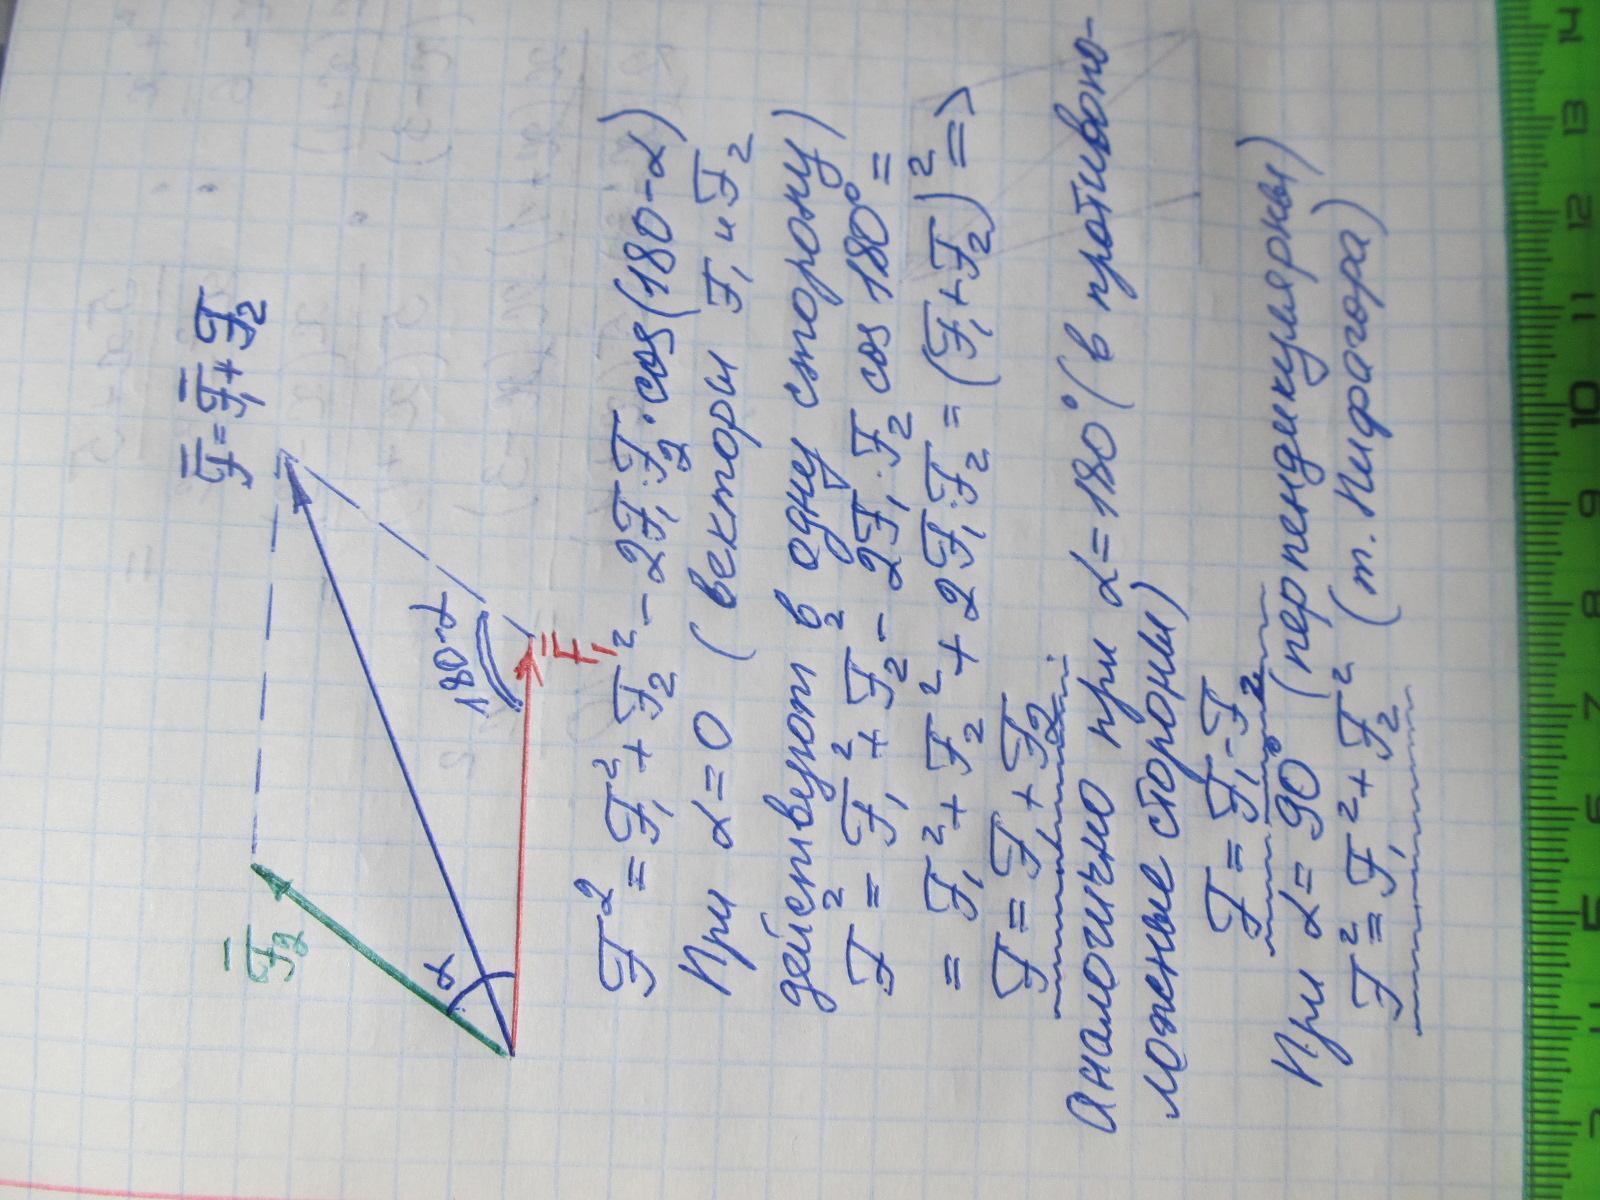 F̅ = F̅₁ + F̅₂
F̅₂
α
180-α
F̅₁
F² = F₁² + F₂² - 2F₁·F₂·cos(180-α)
При α=0 (векторы F₁ и F₂
действуют в одну сторону)
F² = F₁² + F₂² - 2F₁·F₂ cos 180° =
= F₁² + F₂² + 2F₁·F₂ = (F₁+F₂)² =>
F = F₁ + F₂
Аналогично при α=180° (в противопо-
ложеные стороны)
F = F₁ - F₂
При α= 90° (перпендикулярны)
F² = F₁² + F₂² (т. Пифагора)
5 6 7 8 9 10 11 12 13 14